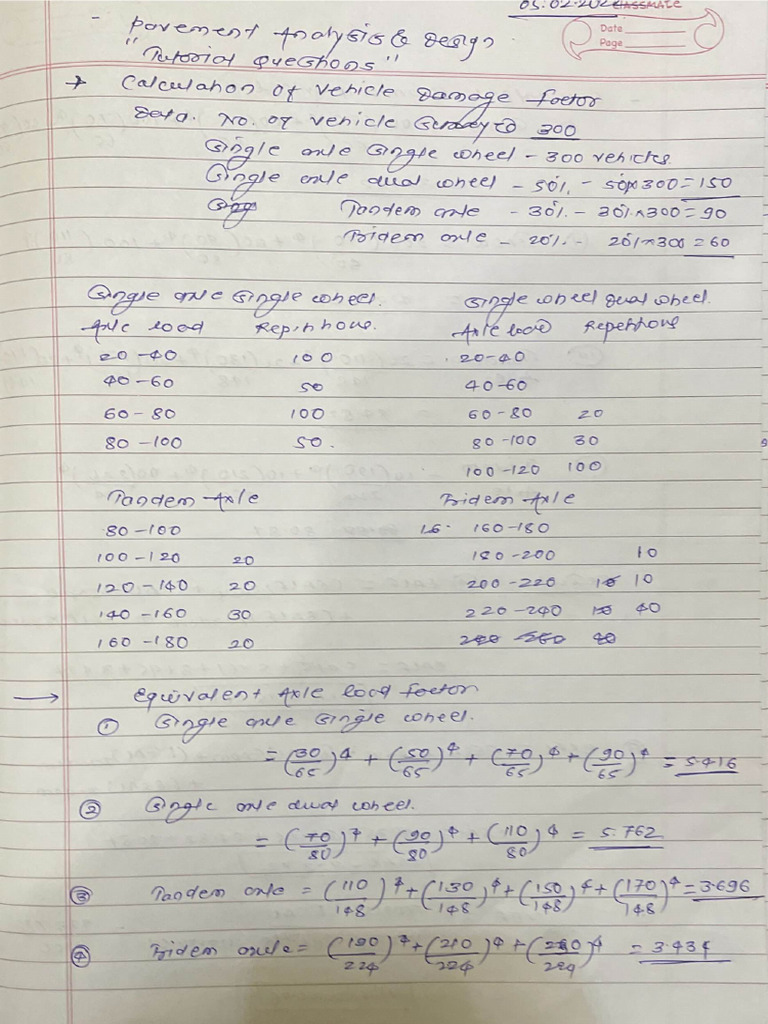 05.02.202
CLASSMATE
Date
Page
- Pavement Analysis & Design
"Tutorial Questions"
→ Calculation of Vehicle Damage Factor
Data. No. of vehicle Surveyed 300
Single axle Single wheel - 300 vehicles
Single axle dual wheel - 50% - 50%×300 = 150
Tandem axle - 30% - 30%×300 = 90
Tridem axle - 20% - 20%×300 = 60
Single axle Single wheel. Single wheel dual wheel.
Axle load Repititions. Axle load Repetitions
20-40 100 20-40
40-60 50 40-60
60-80 100 60-80 20
80-100 50. 80-100 30
100-120 100
Tandem Axle Tridem Axle
80-100 16. 160-180
100-120 20 180-200 10
120-140 20 200-220 10
140-160 30 220-240 40
160-180 20
→ Equivalent Axle load factor
① Single axle Single wheel.
= (30/65)^4 + (50/65)^4 + (70/65)^4 + (90/65)^4 = 5.416
② Single axle dual wheel.
= (70/80)^4 + (90/80)^4 + (110/80)^4 = 5.762
③ Tandem axle = (110/148)^4 + (130/148)^4 + (150/148)^4 + (170/148)^4 = 3.696
④ Tridem axle = (190/224)^4 + (210/224)^4 + (230/224)^4 = 3.434